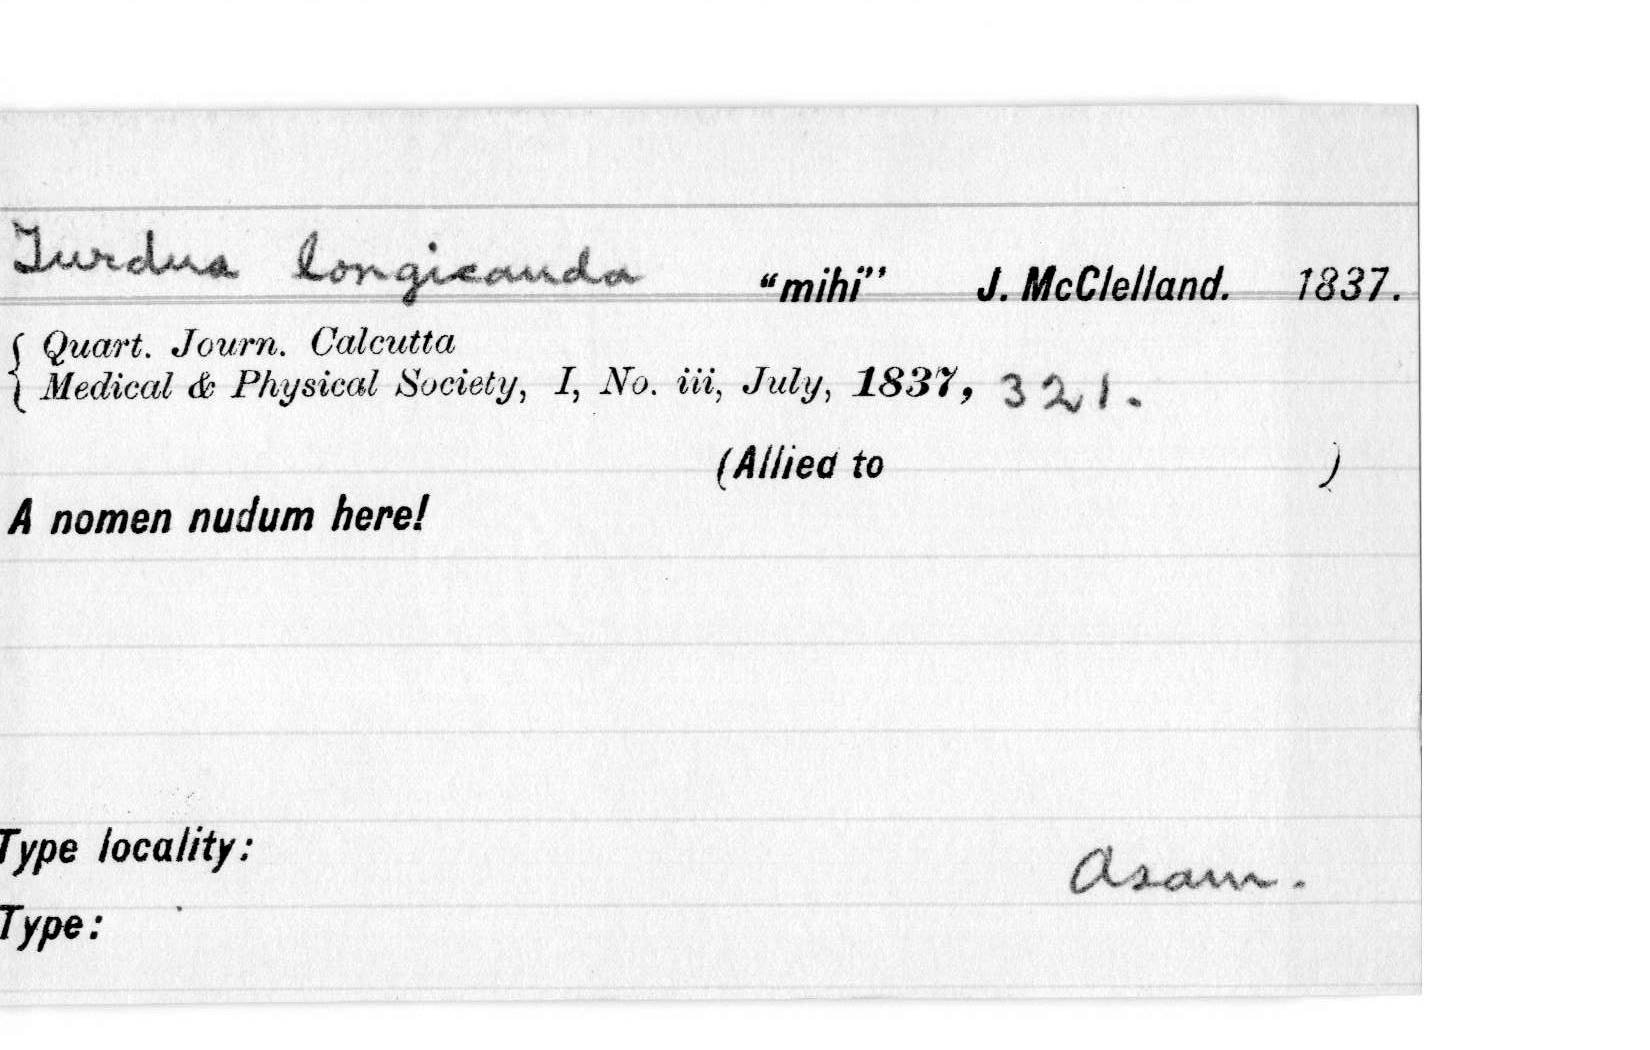 Turdus longicauda "mihi" J. McClelland. 1837.
Quart. Journ. Calcutta
Medical & Physical Society, I, No. iii, July, 1837, 321.
(Allied to )
A nomen nudum here!
Type locality: Asam.
Type: